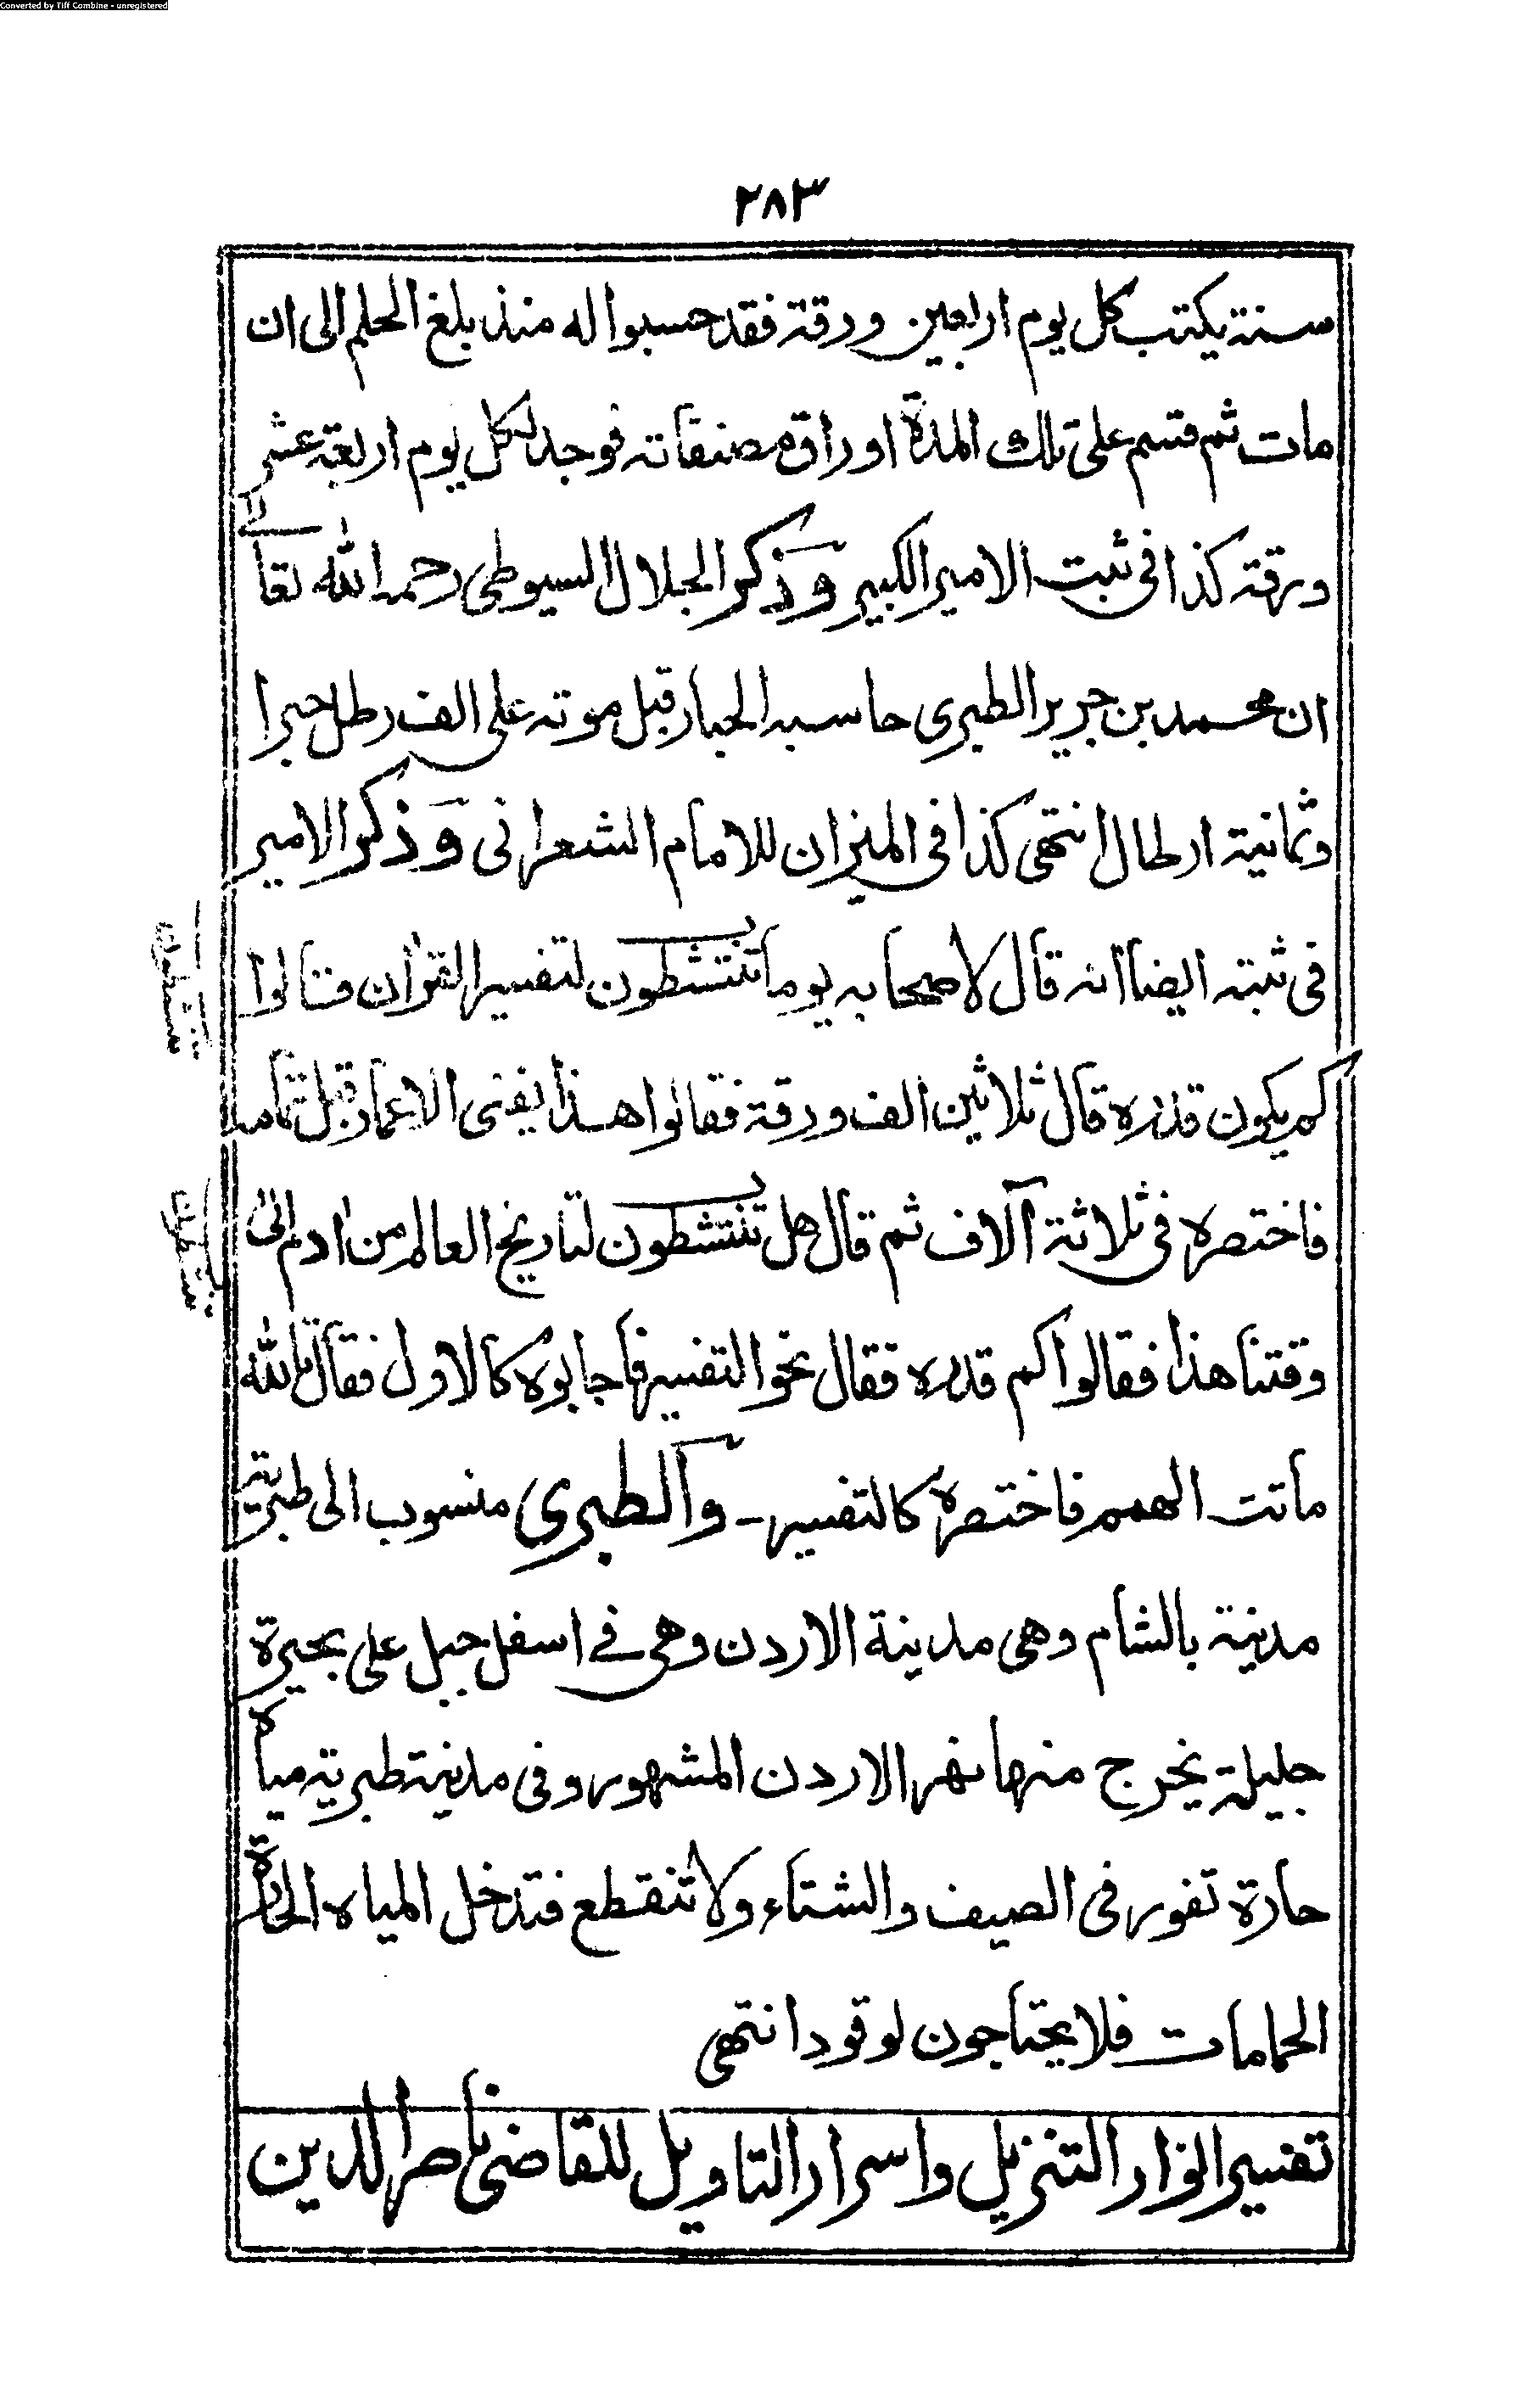 Converted by Tiff Combine - unregistered
٢٨٣
سنة يكتب كل يوم اربعين ورقة فقد حسبوا له منذ بلغ الحلم الى ان
مات ثم قسم على تلك المدة اوراق مصنفاته فوجد لكل يوم اربعة عشر
ورقة كذا فى ثبت الامير الكبير وذكر الجلال السيوطى رحمه الله تعالى
ان محمد بن جرير الطبرى حاسبه الحبار قبل موته على الف رطل حبرا
وثمانية ارطال انتهى كذا فى الميزان للامام الشعرانى وذكر الامير
فى ثبته ايضا انه قال لاصحابه يوما تنتشطون لتفسير القرآن قالوا
كم يكون قدره قال ثلاثين الف ورقة فقالوا هذا يفنى الاعمار قبل تمامه
فاختصره فى ثلاثة آلاف ثم قال هل تنتشطون لتاريخ العالم من ادم الى
وقتنا هذا فقالوا كم قدره فقال نحو التفسير فاجابوه كالاول فقال تالله
ماتت الهمم فاختصره كالتفسير ـ والطبرى منسوب الى طبرية
مدينة بالشام وهى مدينة الاردن وهى فى اسفل جبل على بحيرة
جليلة يخرج منها نهر الاردن المشهور وفى مدينة طبرية مياه
حارة تفور فى الصيف والشتاء ولا تنقطع فتدخل المياه الحارة
الحمامات فلا يحتاجون لوقود انتهى
تفسير انوار التنزيل واسرار التاويل للقاضى ناصر الدين